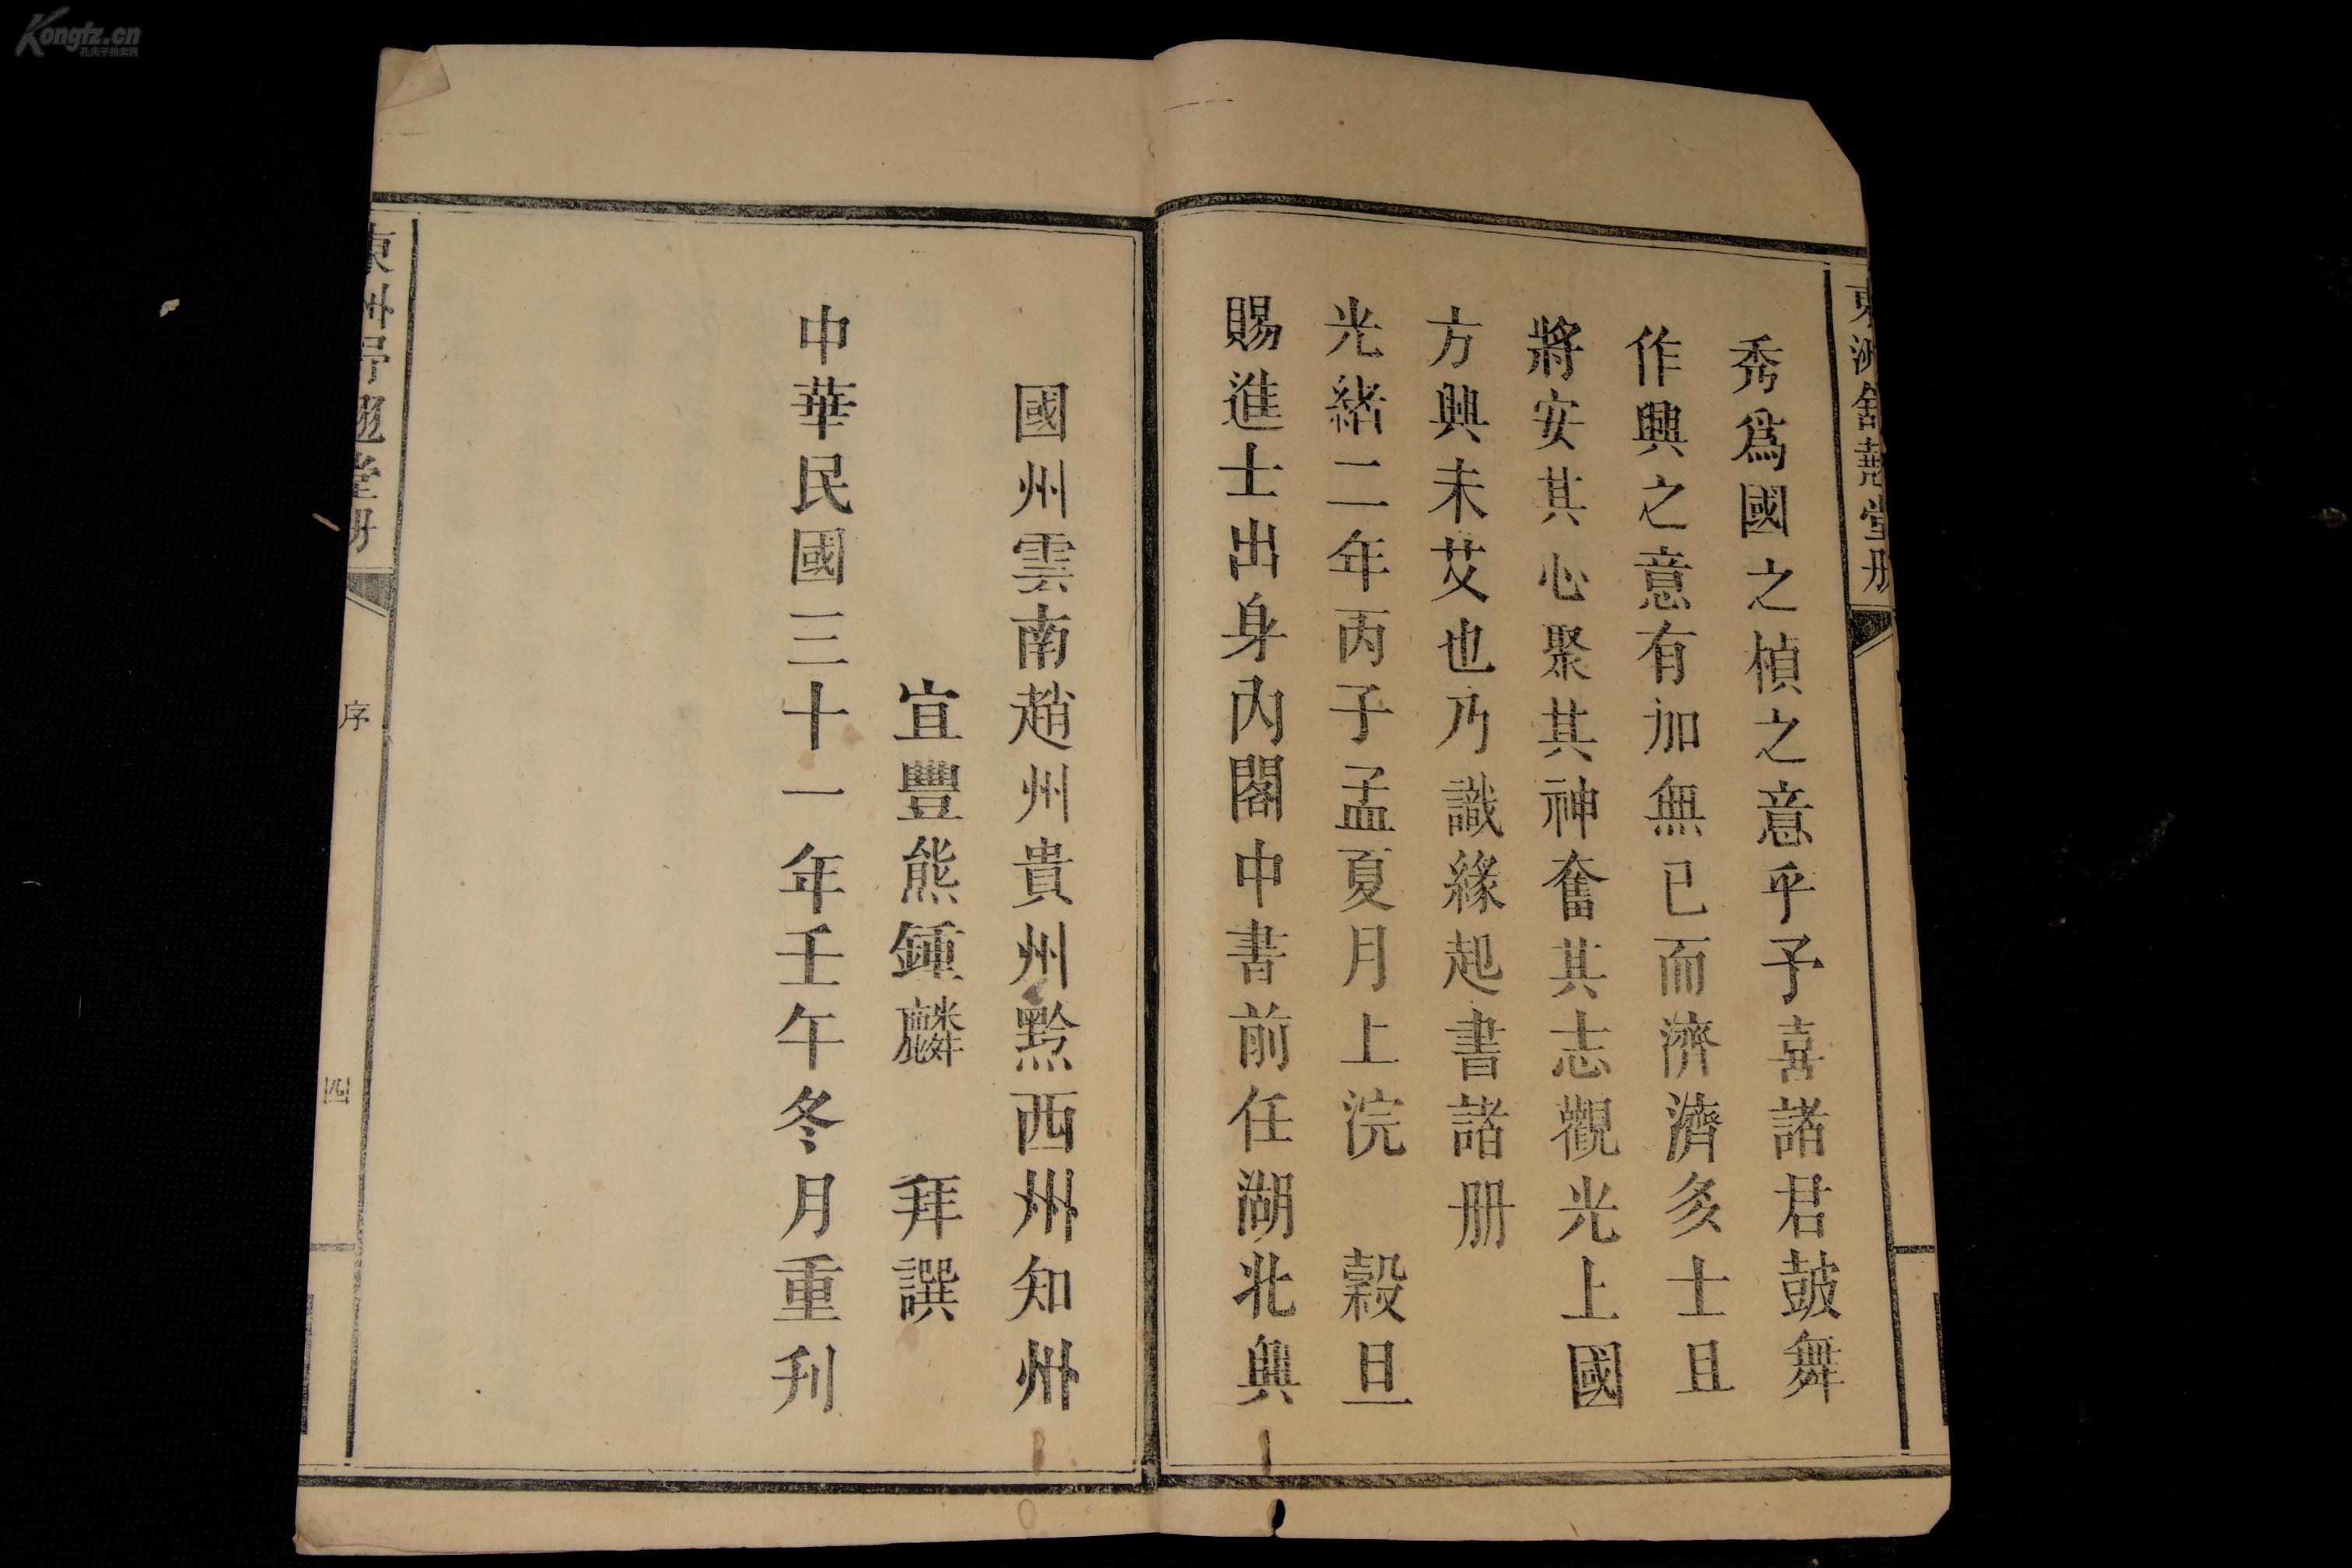 秀爲國之楨之意乎予喜諸君鼓舞
作興之意有加無已而濟濟多士且
將安其心聚其神奮其志觀光上國
方興未艾也乃識緣起書諸册
光緒二年丙子孟夏月上浣 穀旦
賜進士出身内閣中書前任湖北興
國州雲南趙州貴州黔西州知州
宜豐熊鍾麟 拜譔
中華民國三十一年壬午冬月重刋
序
四
Kongfz.cn